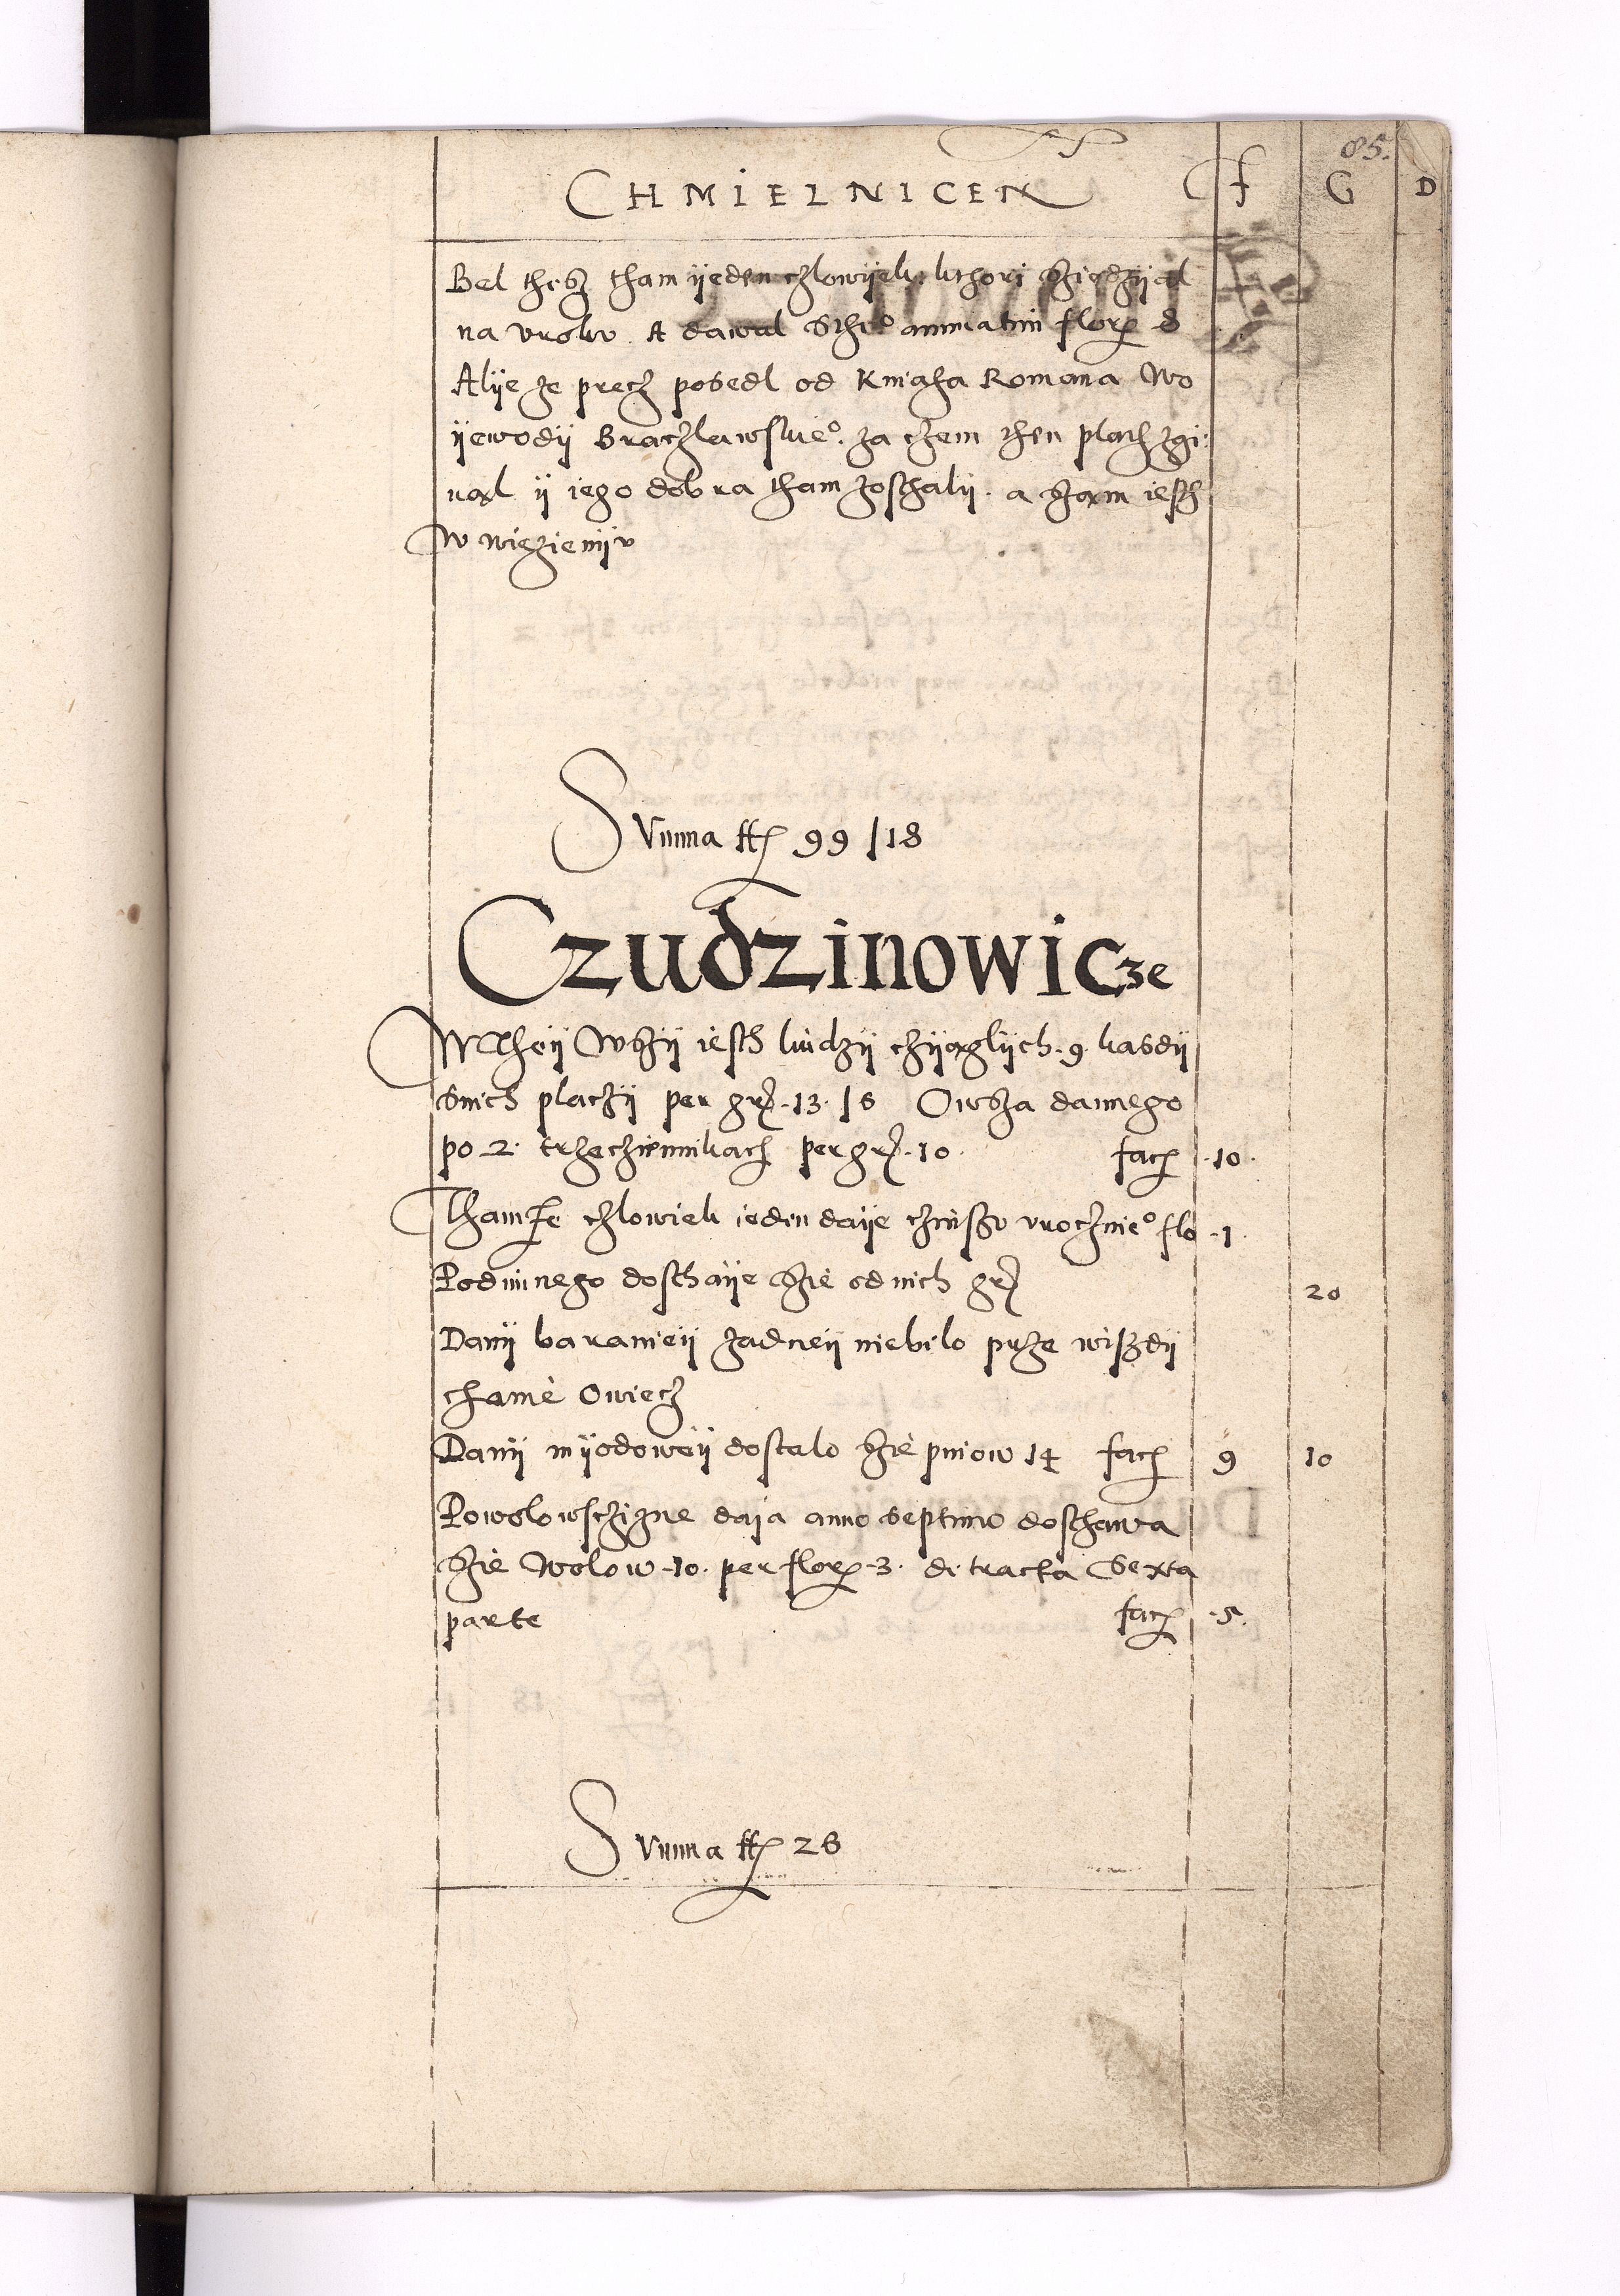 85.
CHMIELNICEN f G D
Bel thesz tham ijeden czlowijek kthori sziedzijal
na vrokv A dawal sthe⁰ annuatim flor 8
Alije ze precz posedl od Kniaza Romana Wo
ijewodij Braczlawskie⁰. za czem then plath zgi:
nąl ij iego dobra tham zosthalij. a szam iesth
w wiezienijv
Svmma ff 99 / 18
Czudzinowicze
W Theij Wszij iesth ludzij czijąglijch. 9. kasdij
snich placzij per gr. 13. / 6 Owsza dannego
po 2. trzeczinnikach per gr. 10. facz .10.
Thamze czlowiek ieden daije czinszv vrocznie⁰ flo .1.
Podimnego dosthaije szie od nich gr 20
Danij baranieij zadneij niebilo prze wiszdij
chanie Owiecz
Danij mijodoweij dostalo szie pniow 14 facz 9 10
Powolowsczizne daja anno septimo dosthawa
szie Wolow .10. per flor .3. detracta Sexta
parte facz .5.
Svmma ff 26